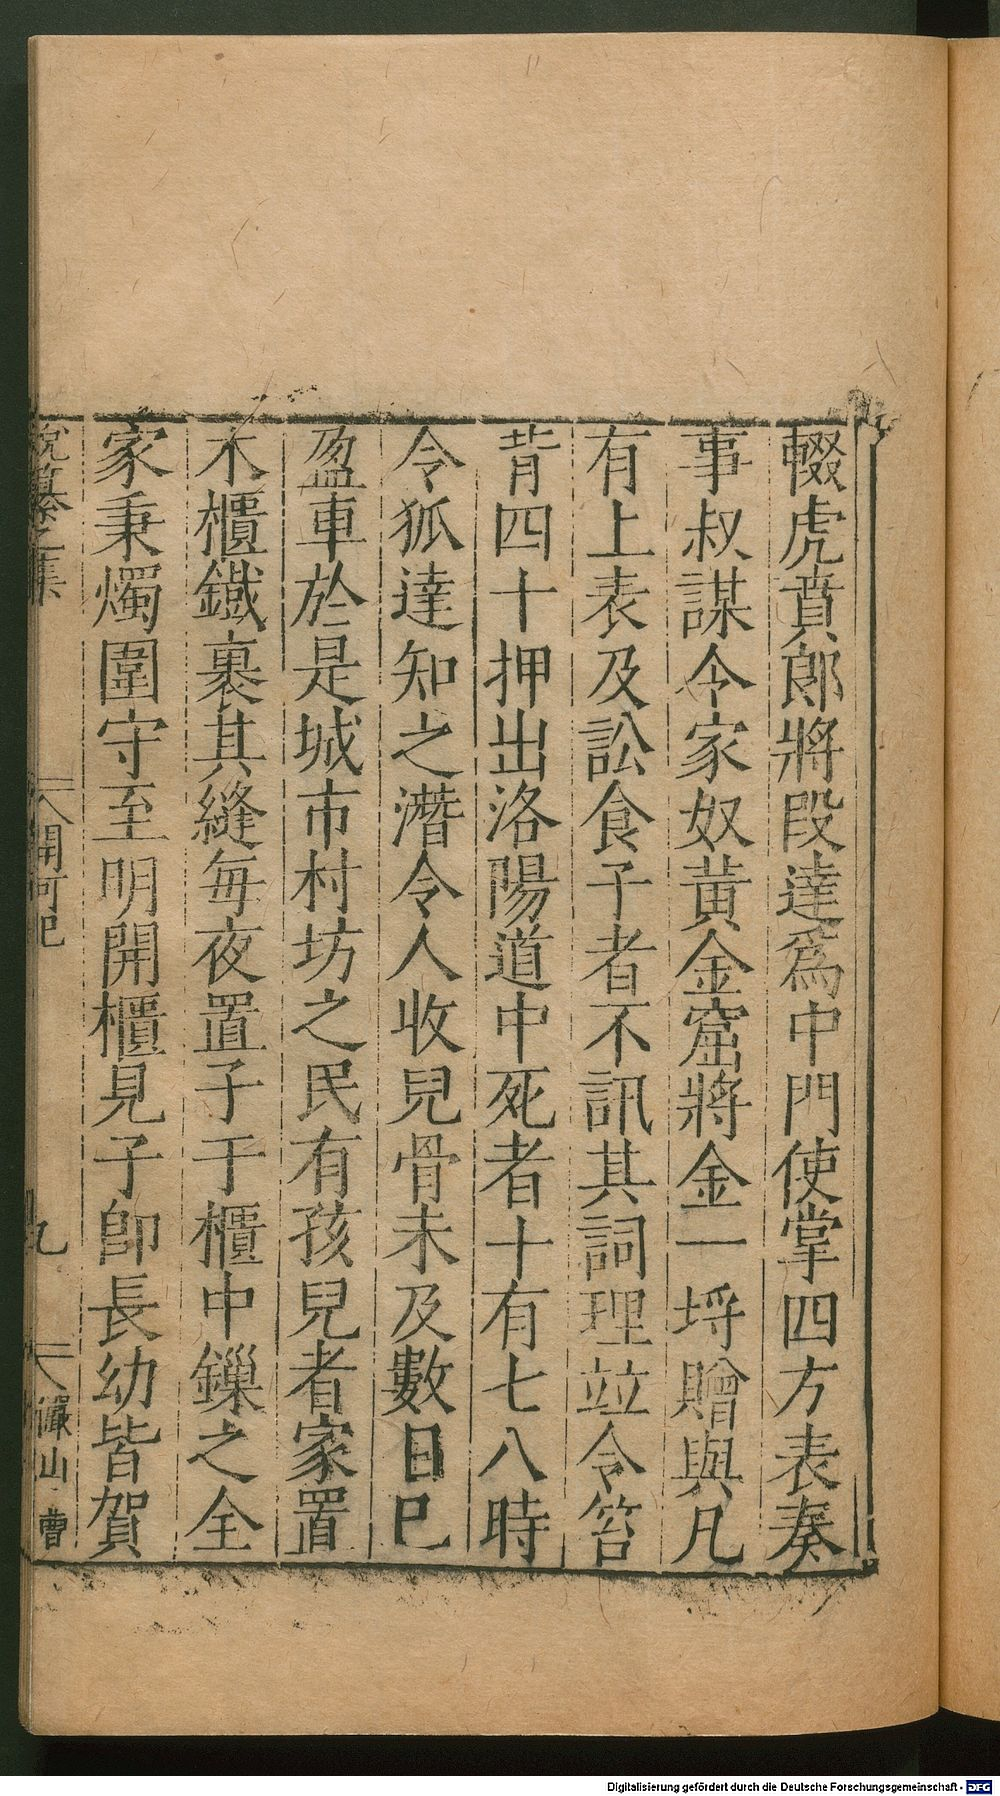 輟虎賁郎將段達爲中門使掌四方表奏
事叔謀令家奴黃金窟將金一埒贈與凡
有上表及訟食子者不訊其詞理竝令笞
背四十押出洛陽道中死者十有七八時
令狐達知之潛令人收兒骨未及數日已
盈車於是城市村坊之民有孩兒者家置
木櫃鐵裹其縫每夜置子于櫃中鏁之全
家秉燭圍守至明開櫃見子卽長幼皆賀
說纂之集 開河記 九 儼山書
Digitalisierung gefördert durch die Deutsche Forschungsgemeinschaft - DFG